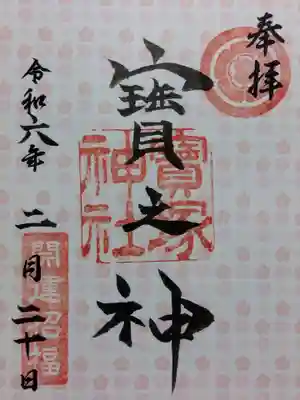 奉拝
寶之神
寶塚
神社
令和六年
二月二十日
開運招福